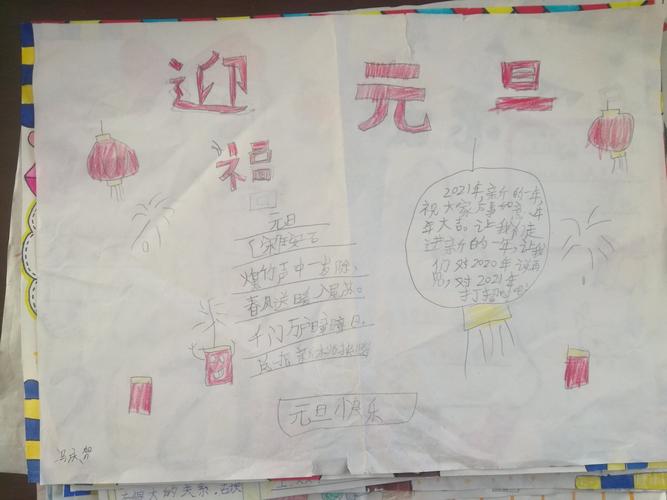 迎元旦
福
元旦
[宋]王安石
爆竹声中一岁除，
春风送暖入屠苏。
千门万户曈曈日，
2021年,新的一年,
祝大家万事如意,年
年大吉。让我们走
进新的一年,让我
们对2020年说再
见,对2021年
打招呼吧
元旦快乐
冯庆贺
大的关系,